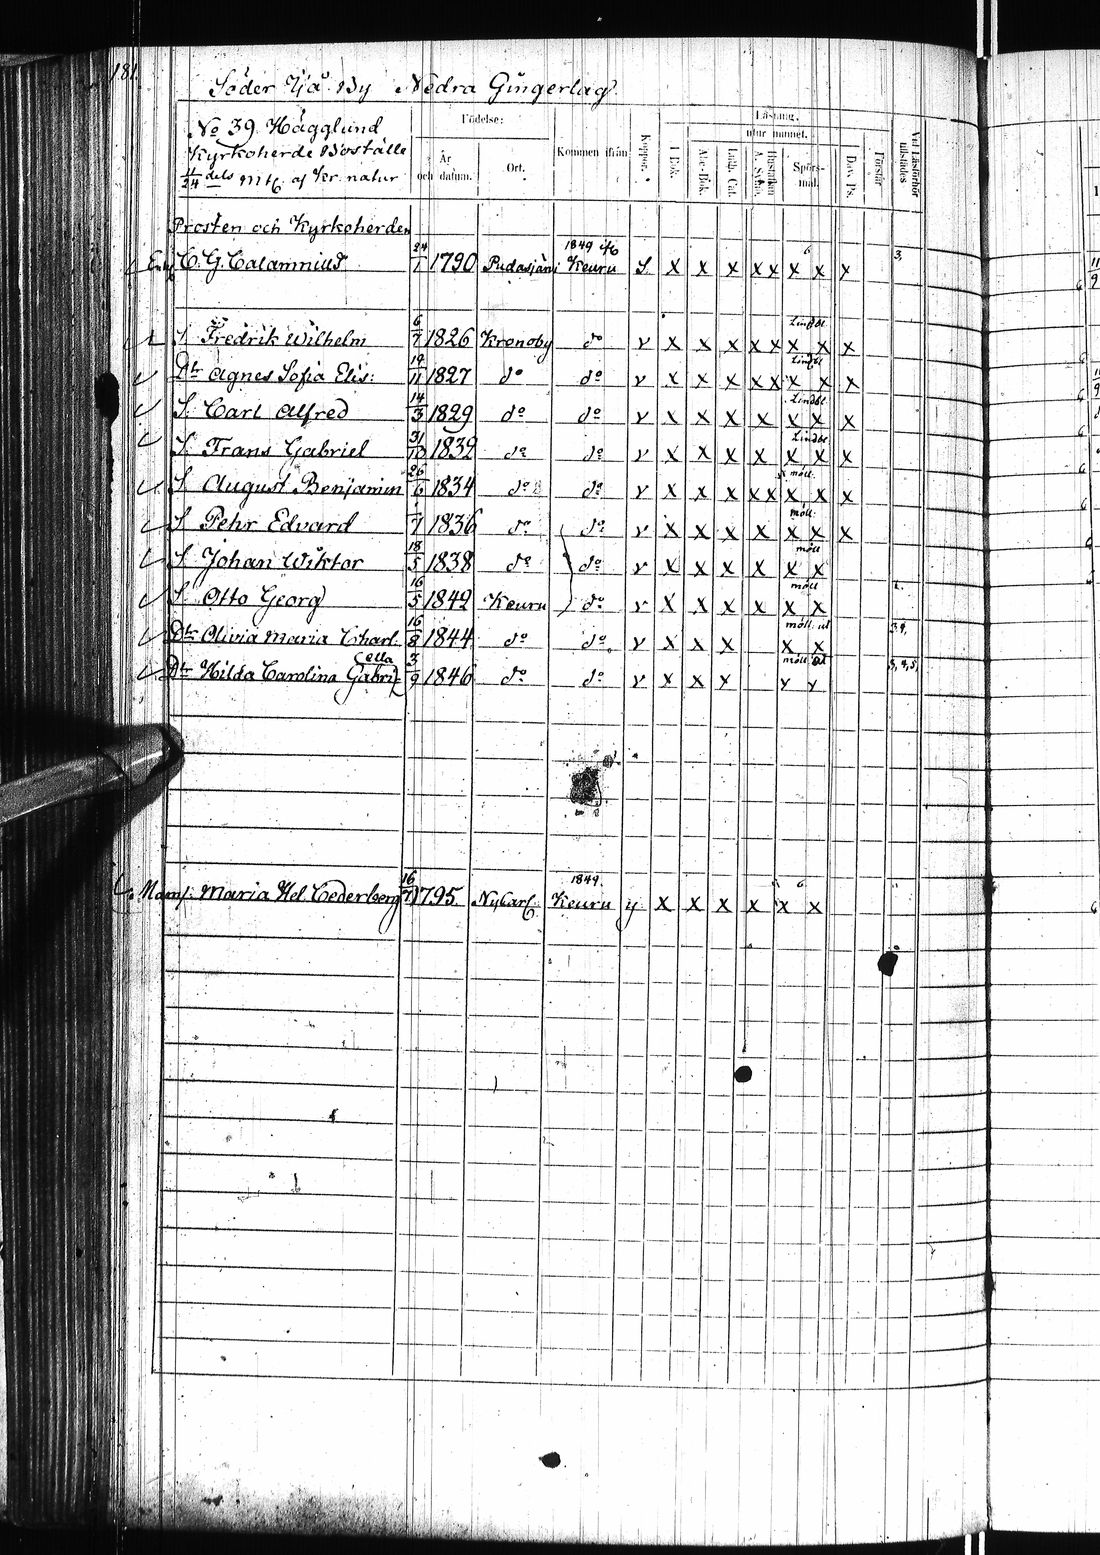 181.
Söder Yjå By Nedra Gingerlag
No 39. Hägglund
Kyrkoherde Boställe
11/24 dels mtl. af Kr. natur
Födelse:
År och datum.
Ort.
Kommen ifrån
Koppor.
Läsning.
utur minnet.
I Bok.
Abc-Bok.
Luth. Cat.
Hustaflan A. Symb.
Spörsmål.
Dav. Ps.
Förstår
Vid Läsförhör tillstädes
Prosten och Kyrkoherden
C. G. Calamnius 24/1 1790 Pudasjärvi 1849 Keuru S. X X X X X 6 X X X 3,
S. Fredrik Wilhelm 6/7 1826 Kronoby do v X X X X X Lindbl X X X
Dtr Agnes Sofia Elis: 19/11 1827 do do v X X X X X Lindbl X X X
S. Carl Alfred 14/3 1829 do do v X X X X Lindbl X X X
S. Frans Gabriel 31/10 1832 do do v X X X X Lindbl X X X
S. August Benjamin 26/6 1834 do do v X X X X X möll. X X X
S. Pehr Edvard 1/7 1836 do do v X X X X möll. X X X
S. Johan Wiktor 18/5 1838 do do v X X X X möll X X
S. Otto Georg 16/5 1842 Keuru do v X X X X möll X X
Dtr Olivia Maria Charl. 16/8 1844 do do v X X X möll. ut X X 3,4,
Dtr Hilda Carolina Gabriella 3/9 1846 do do v X X X möll. ut X X 3,4,5,
Mams. Maria Hel. Cederberg 16/7 1795 NyCarl. 1849 Keuru y X X X X 6 X X